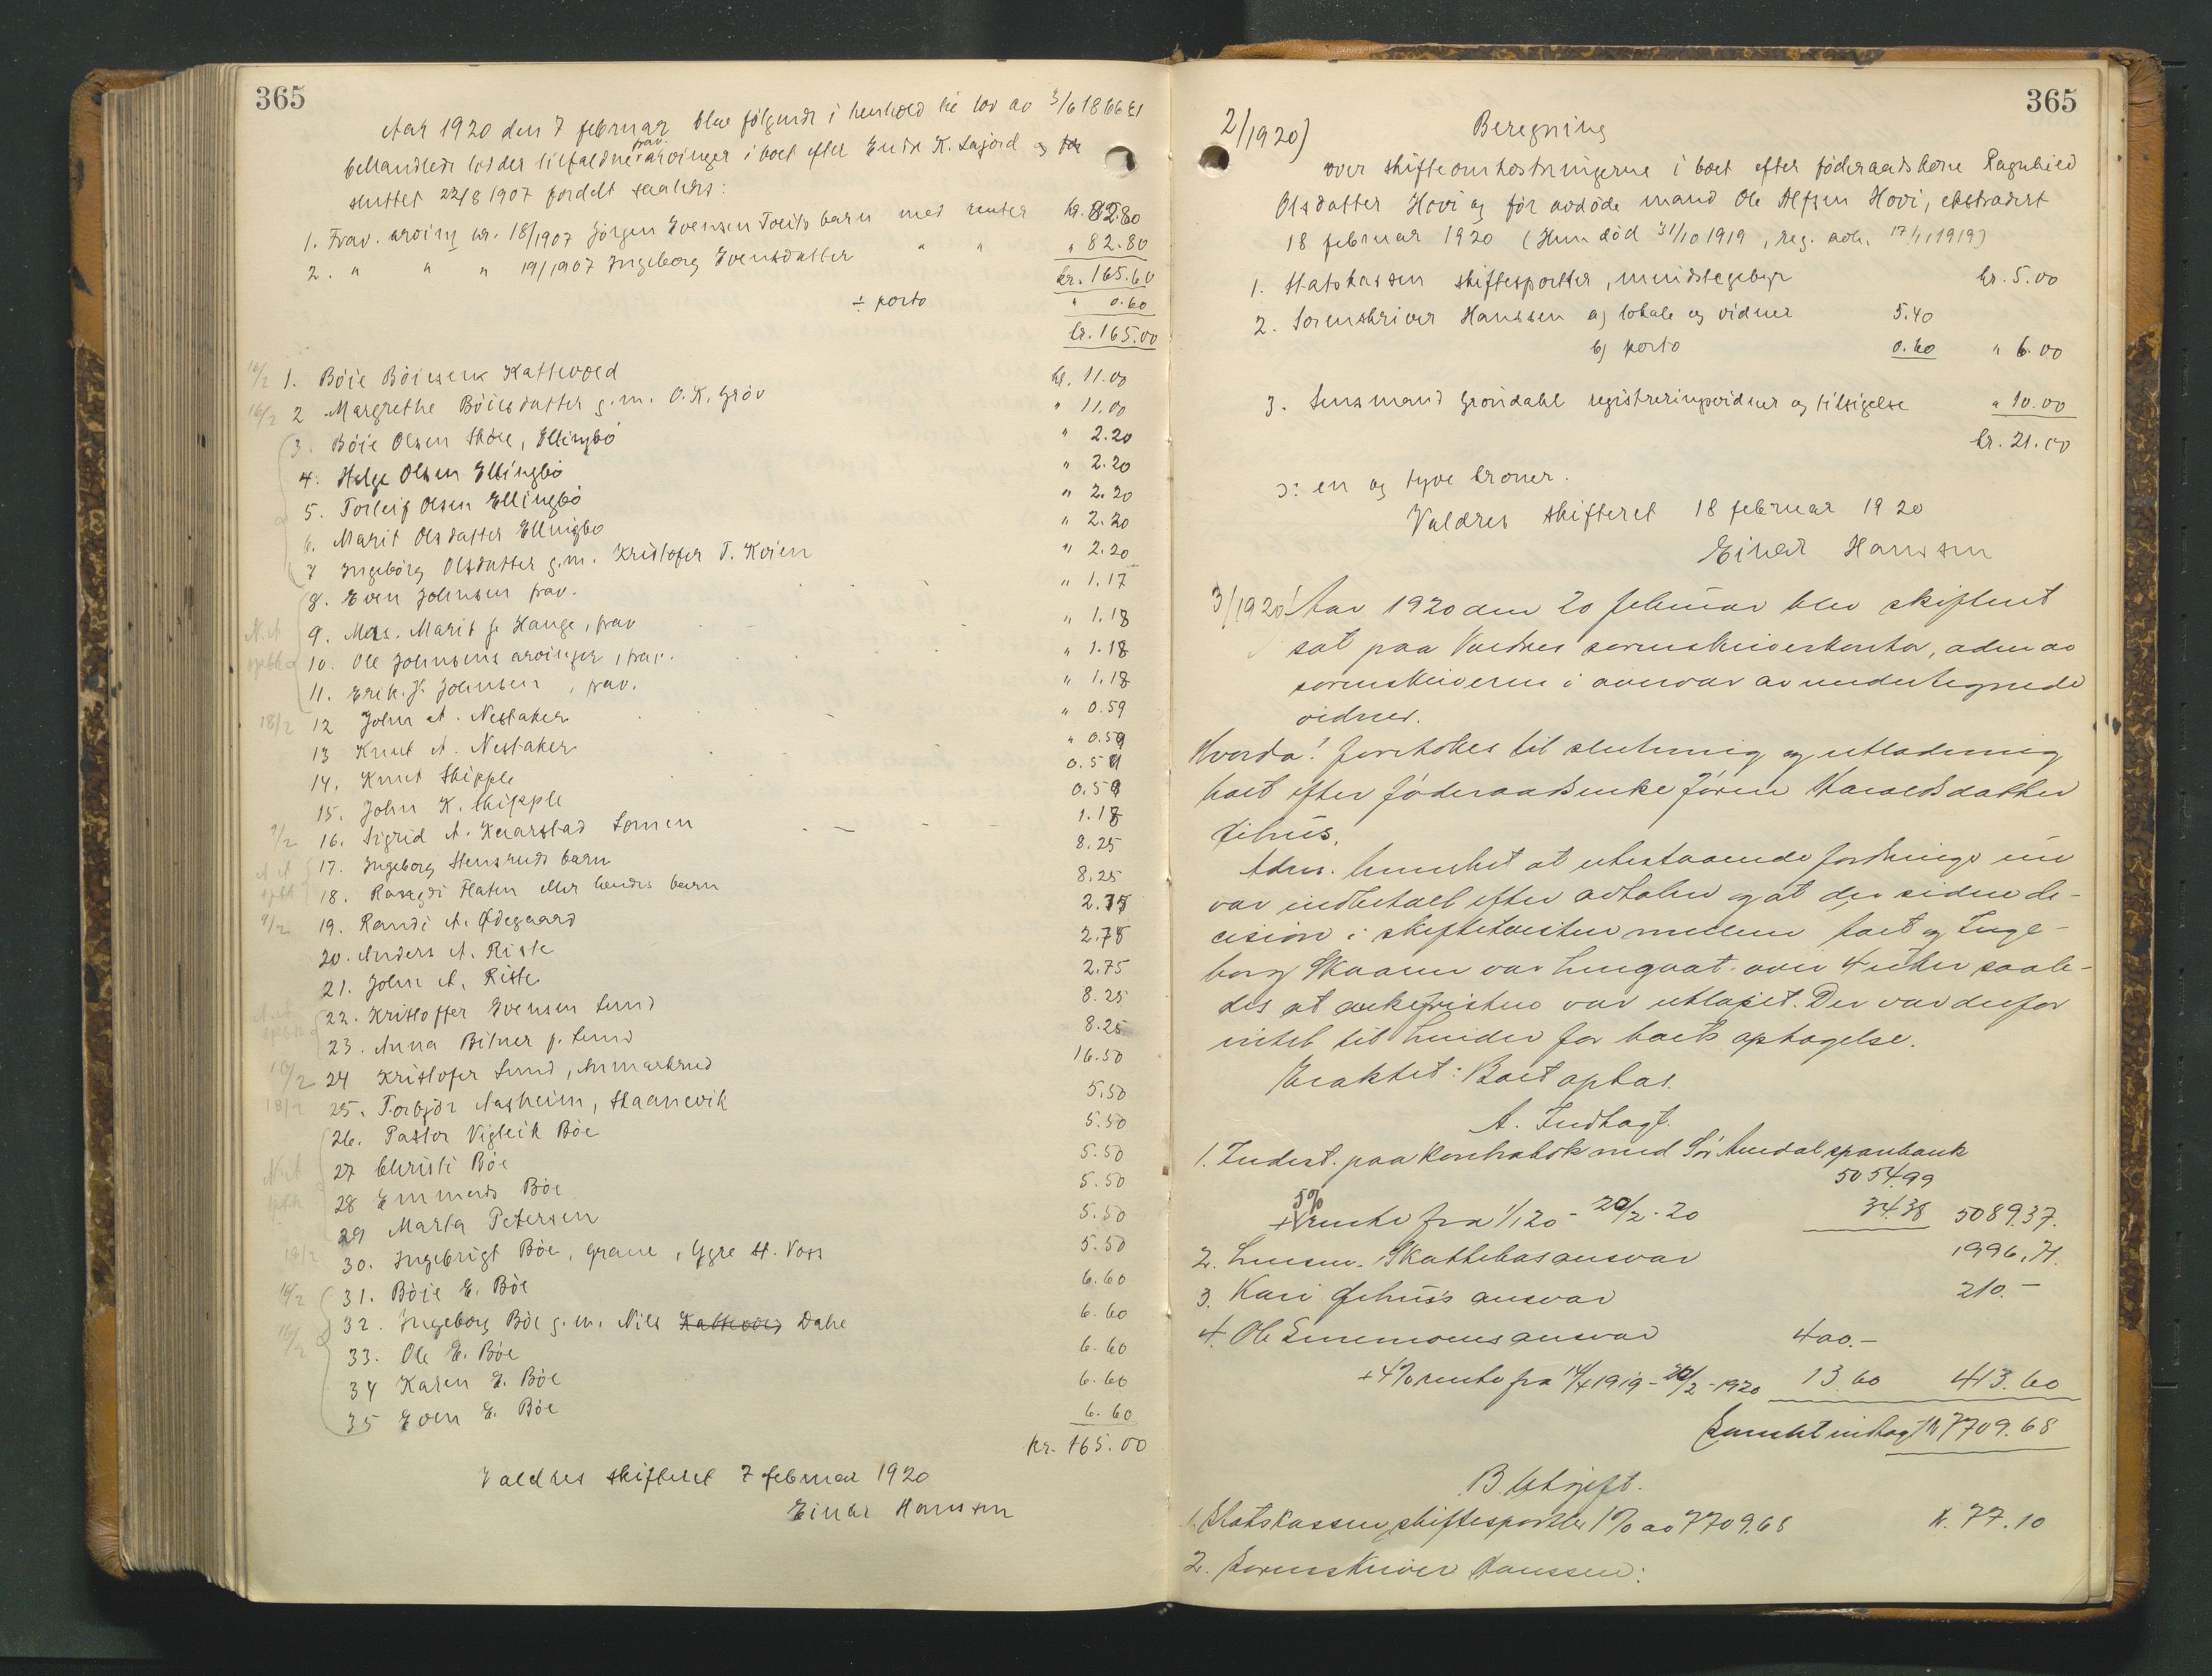 365
Aar 1920 den 7 februar blev følgende i henhold til lov av 3/6 1866 §1
behandlede lodder tilfaldne frav. arvinger i boet efter Endr. K. Lajord og
sluttet 22/8 1907 fordelt saaledes:
1. Frav. arving nr. 18/1907 Jörgen Evensen Toeits barn med renter kr. 82.80
2. " " " 19/1907 Ingeborg Evensdatter " " " 82.80
kr. 165.60
÷ porto " 0.60
kr. 165.00
16/2 1. Böie Böiesen Kattevold kr. 11.00
16/2 2 Margrethe Böiesdatter g.m. O.K. Gröv " 11.00
3. Böie Olsen Sköle, Ellingbö " 2.20
4. Helge Olsen Ellingbö " 2.20
5. Torleif Olsen Ellingbö " 2.20
6. Marit Olsdatter Ellingbo " 2.20
7 Ingebörg Olsdatter g.m. Kristofer T. Kvien " 2.20
8. Even Johnsen frav. " 1.17
9. Mrs. Marit J. Hauge, frav " 1.18
10. Ole Johnsens arvinger, frav. " 1.18
11. Erik J. Johnsen, frav. " 1.18
18/2 12 John A. Nestaker " 0.59
13 Knut A. Nestaker " 0.59
14. Knut Skipple 0.59
15. John K. Skipple 0.59
9/2 16. Sigrid A. Kvarstad Lomen 1.18
17. Ingeborg Stensruds barn 8.25
18. Ragndi Flaten eller hendes barn 8.25
9/2 19. Randi A. Ødegaard 2.75
20. Anders A. Riste 2.75
21. John A. Riste 2.75
22. Kristoffer Evensen Lund 8.25
23. Anna Bitner f. Lund 8.25
10/2 24 Kristofer Lund, Ammarbrud 16.50
18/2 25. Torbjör Nasheim, Skaanevik 5.50
26. Pastor Vigleik Böe 5.50
27 Christi Böe 5.50
28 Emmerds Böe 5.50
29 Marta Petersen 5.50
30. Ingebrigt Böe, Graue, Ygre st. Voss 5.50
16/2 31. Böie E. Böe 6.60
16/2 32. Ingeborg Böe g.m. Nils Kattevold Dahe 6.60
33. Ole E. Böe 6.60
34 Karen E. Böe 6.60
35 Even E. Böe 6.60
kr. 165.00
Valdres skifteret 7 februar 1920
Einar Hanssen
365
2/1920) Beregning
over skifteomkostningerne i boet efter föderaadskone Ragnhild
Olsdatter Hovi og för avdöde mand Ole Alfsen Hovi, ekstradert
18 februar 1920 (Hun död 31/10 1919, reg. avh. 17/11 1919)
1. Statskassen skiftesportler, mindstegebyr kr. 5.00
2. Sorenskriver Hanssen a) lokale og vidner 5.40
b) porto 0.60 " 6.00
3. Lensmand Gröndahl registreringsvidner og tilsigelse " 10.00
kr. 21.00
ɔ: en og tyve kroner.
Valdres skifteret 18 februar 1920
Einar Hanssen
3/1920) Aar 1920 den 20 februar blev skifteret
sat paa Valdres sorenskriverkontor, adm. av
sorenskriveren i nærvær av undertegnede
vidner.
Hvorda! foretokes til slutning og utlodning
boet efter föderaadsenke Jören Haraldsdatter
Fihus.
Adm. bemerket at utestaaende fordringer nu
var indbetalt efter avtalen og at den sidste de-
cision i skiftetvisten mellem boet og Inge-
borg Skaann var hengaat over 4 uker saale-
des at ankefristen var utløpet. Der var derfor
intet til hinder for boets optagelse.
Eraktet: Boet optas.
A. Indtægt.
1. Indest. paa kontrabok med Sör Aurdal sparebank
5054.99
+ 5% rente fra 1/1 20 - 20/2-20 34.38 5089.37.
2. Lensm. Skattebøs ansvar 1996.71.
3. Kari Fehus's ansvar 210.-
4. Ole Simmones ansvar 400.-
+ 4% rente fra 14/4 1919 - 20/2-1920 13.60 413.60
Samlet indtægt kr 7709.68
B. Utgift.
1. Statskassen, skiftesportler 1% av 7709.68 kr. 77.10
2. Sorenskriver Hanssen: